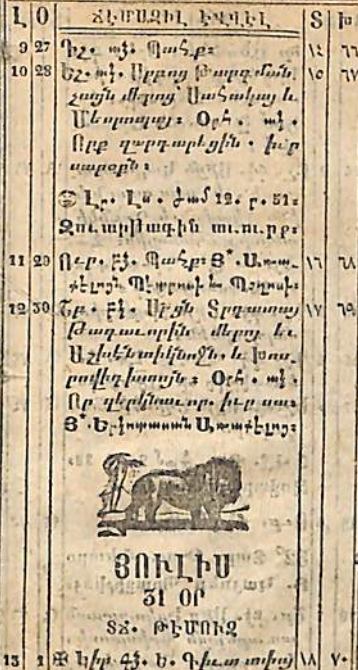 Լ Օ ՃԷՄԱԶԻԼ ԷՎՎԷԼ Տ Խ
9 27 Դշ. աձ. Պահք։
10 28 Եշ. աձ. Սրբոց Թարգման
չացն մերոց՝ Սահակայ և
Մեսրոպայ։ Օրհ. աձ.
Որք զարդարեցին. իւր
սարօքն։
Լր. Լս. ժամ 12. ր. 51։
Զուարթագին աւուրք։
11 29 Ուր. բձ. Պահք։ Յ՟. Առա
քելոցն Պետրոսի և Պօղոսի։
12 30 Շբ. բձ. Սրբոյն Տրդատայ
Թագաւորին մերոյ և
Աշխէն տիկնոջն. և Խոս
րովիդխտոյն։ Օրհ. աձ.
Որ զերկնաւոր. իւր սաս
Յ՟. Երկոտասան Առաքելոց։
ՅՈՒԼԻՍ
31 ՕՐ
ՏՃ. ԹԷՄՈՒԶ
13 1 Կիր. գձ. Ե.